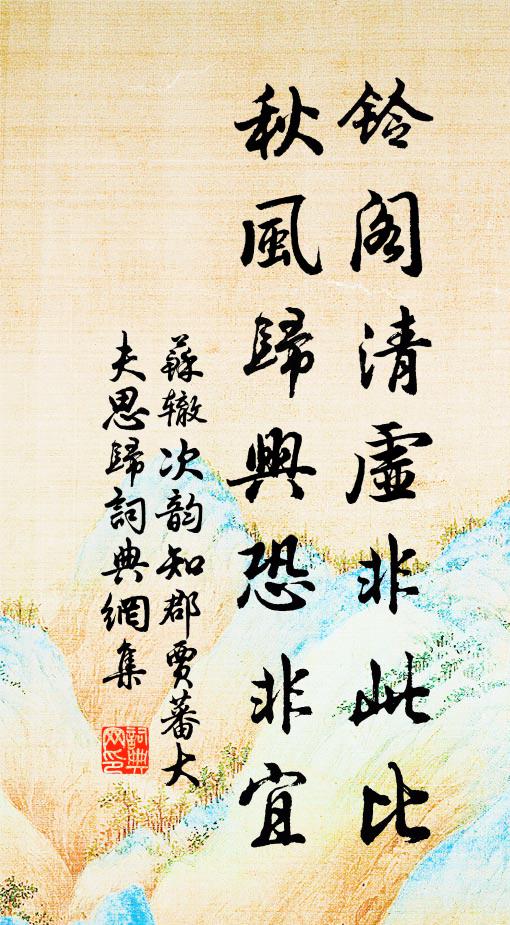 鈴閣清虛非此比
秋風歸興恐非宜
蘇轍次韵知郡賈蕃大
夫思歸詞典網集
詞典
网印